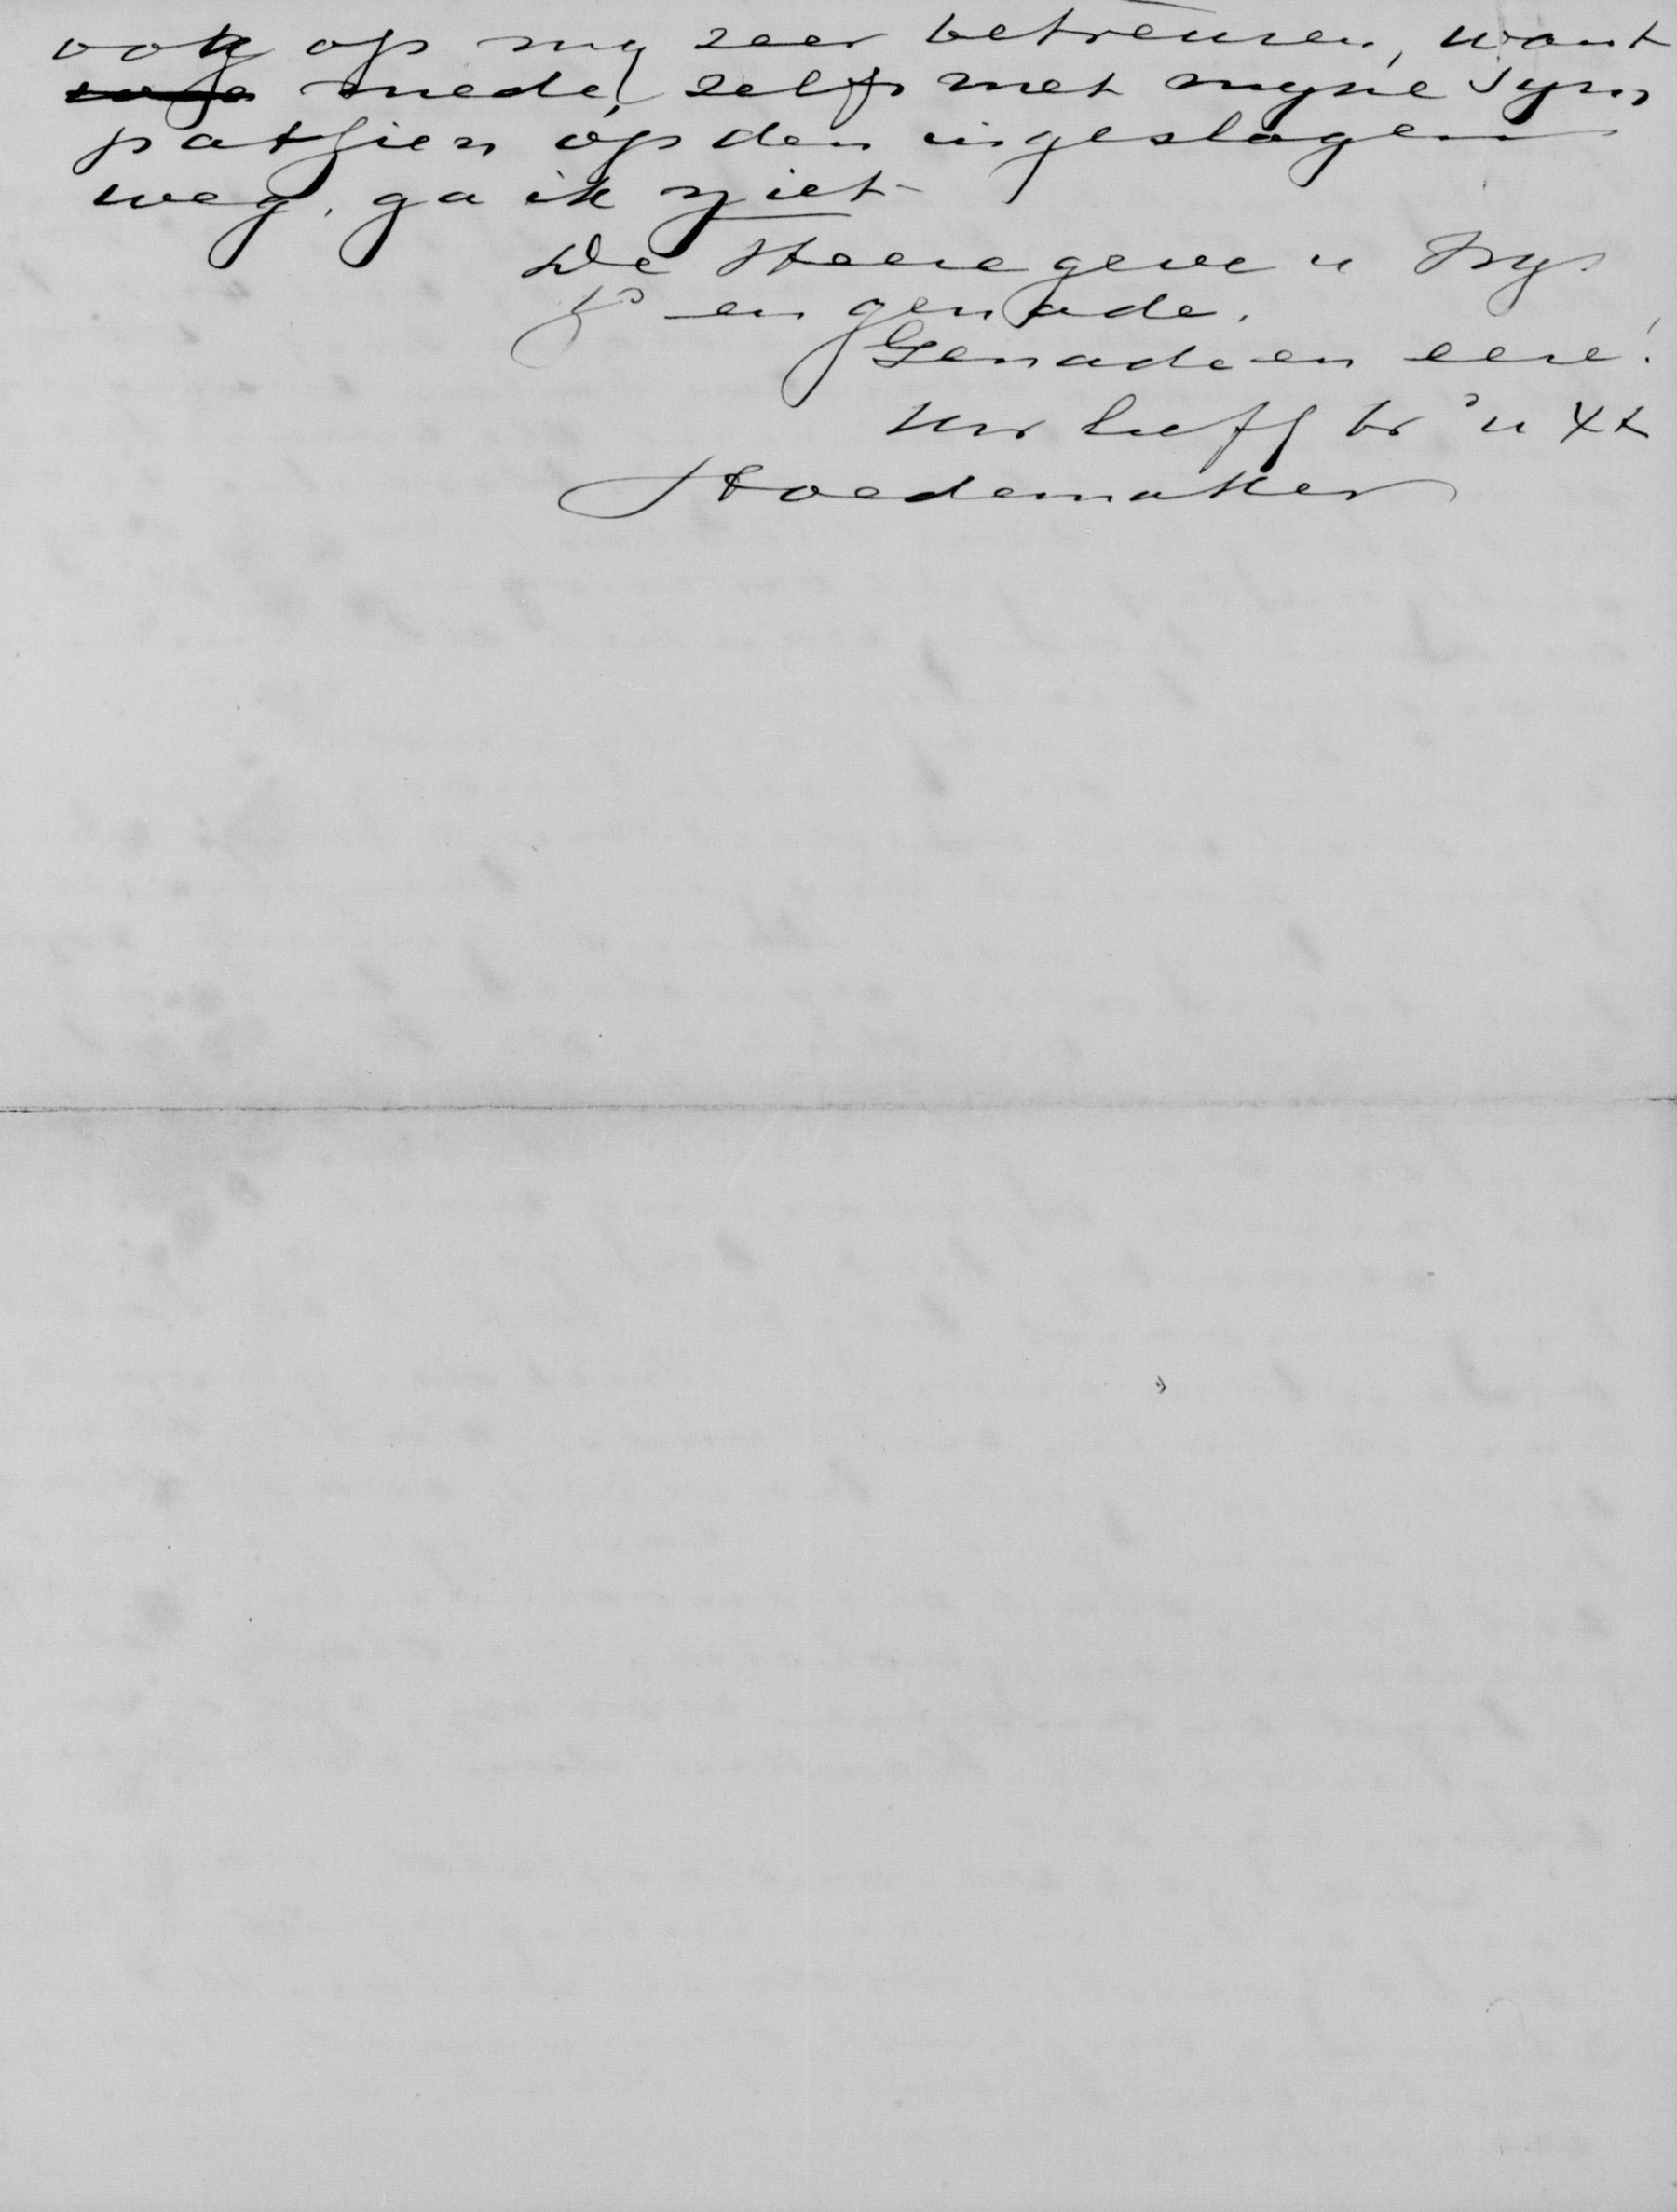 ook op my zeer betreuren, want
mede, zelfs met myne Sym
pathien op den ingeslagen
weg, ga ik niet
De Heere geve u
en genade.
Genade en eere!
Uw liefh br in Xt
Hoedemaker